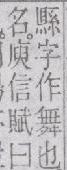 縣字作舞也
名庾信賦曰